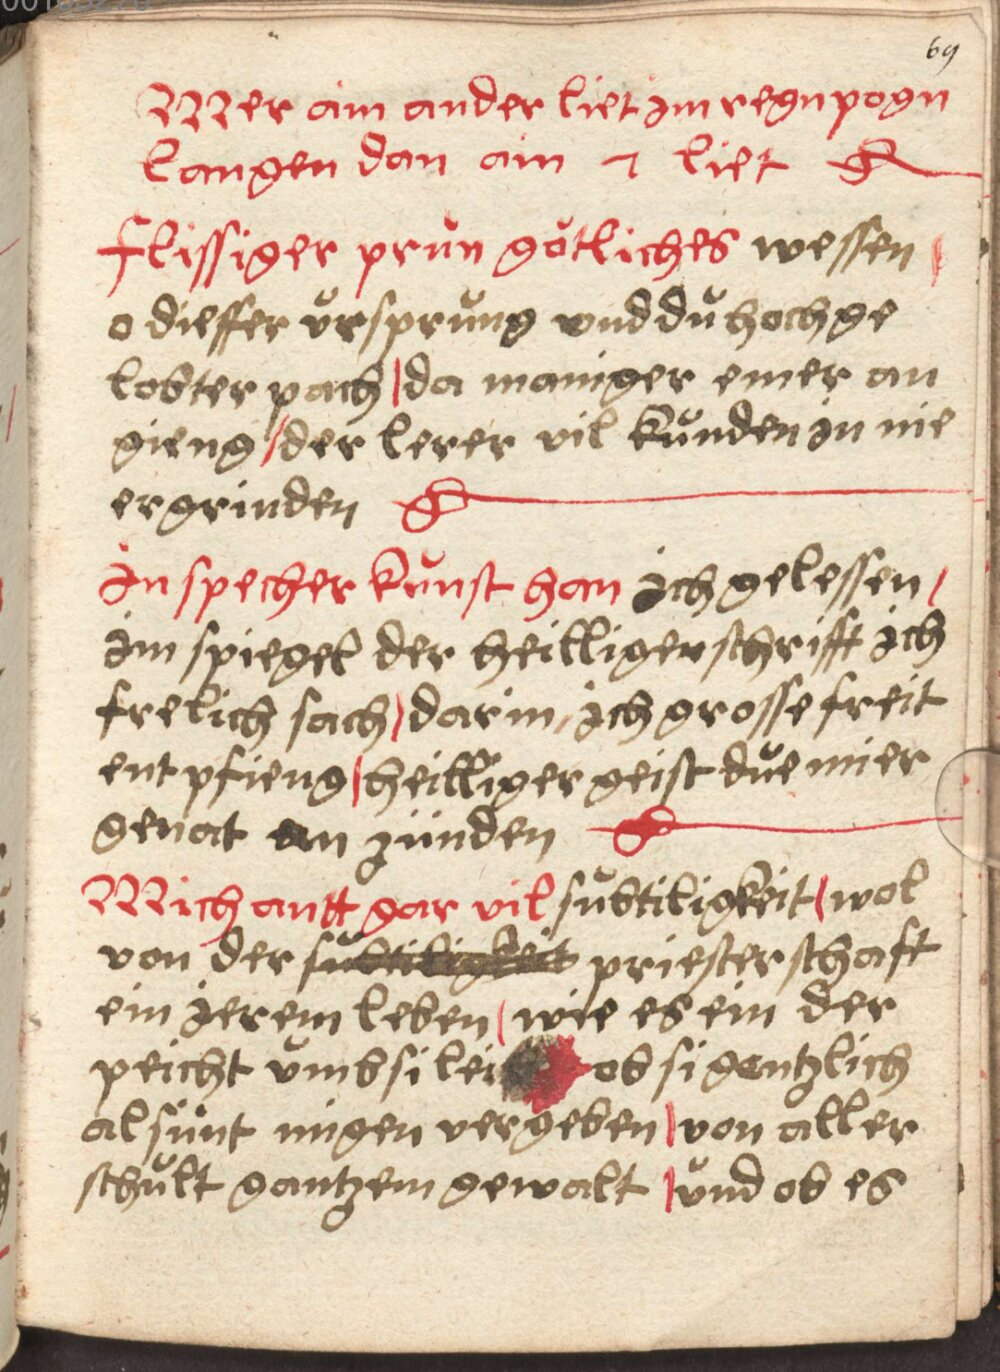 69
Mer ain ander liet im regn pogn
langen dan ain liet
flissiger prün götliches wessen
o dieffer ürsprüng vnd dü hoch ge
lobter pach / da maniger einer an
gieng / der lerer vil künden in nie
ergrinden
In specher künst han ich gelessen /
im spiegel der heilliger schrifft ich
frelich sach / darin, ich grosse freit
ent pfieng / heilliger geist düe mier
genat an zünden
Mich antt gar vil sübtiligkeit / wol
von der sübtiligkeit priesterschafft
ein ierem leben / wie es ein der
peicht ümb si lei ob si gentzlich
al sünt migen vergeben / von aller
schült gantzem gewalt / vnd ob es